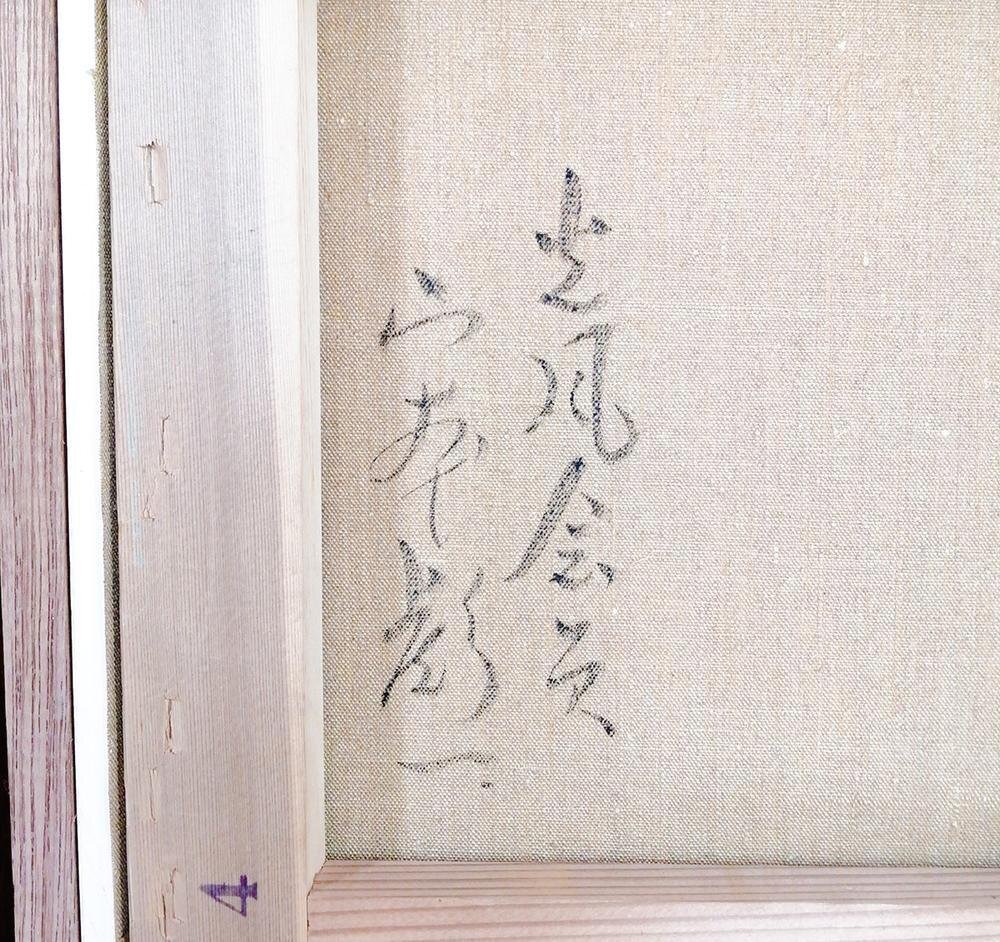 光風会員
山本彪一
4